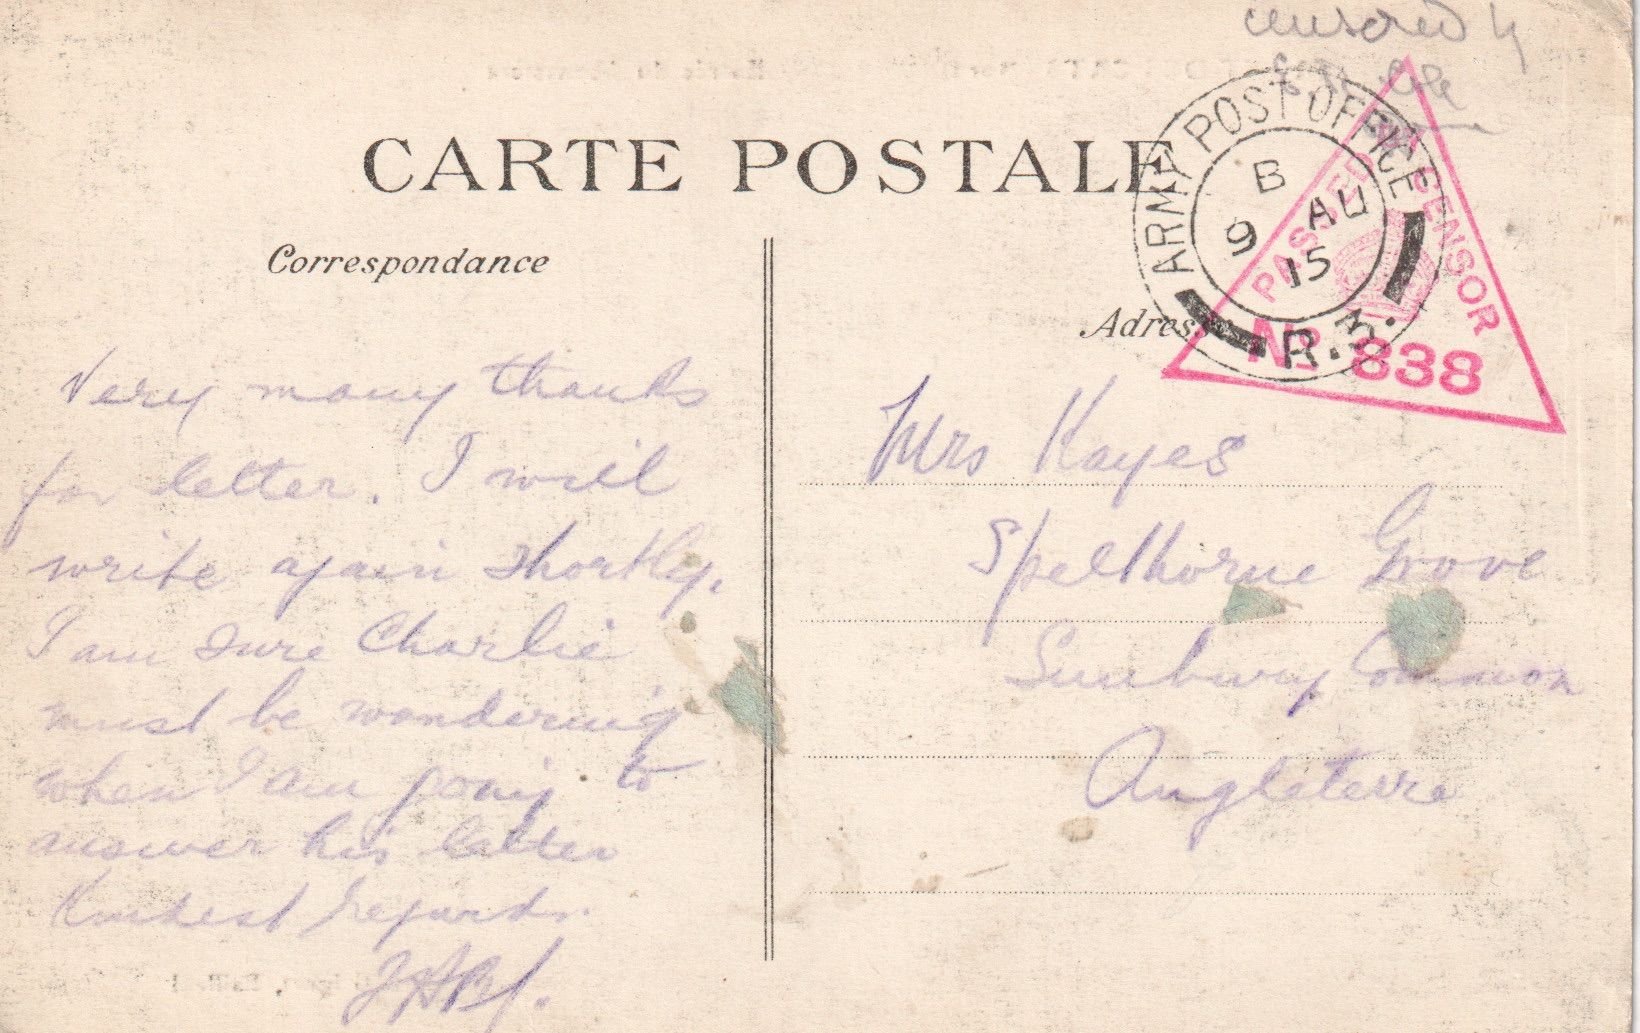 censored by
CARTE POSTALE
ARMY POST OFFICE
B
9 AU
15
R.3.
PASSED CENSOR
No 838
Correspondance
Very many thanks
for letter. I will
write again shortly.
I am sure Charlie
must be wondering
when I am going to
answer his letter
Kindest regards.
Adresse
Mrs Kayes
Spelthorne Grove
Sunbury Common
Angleterre